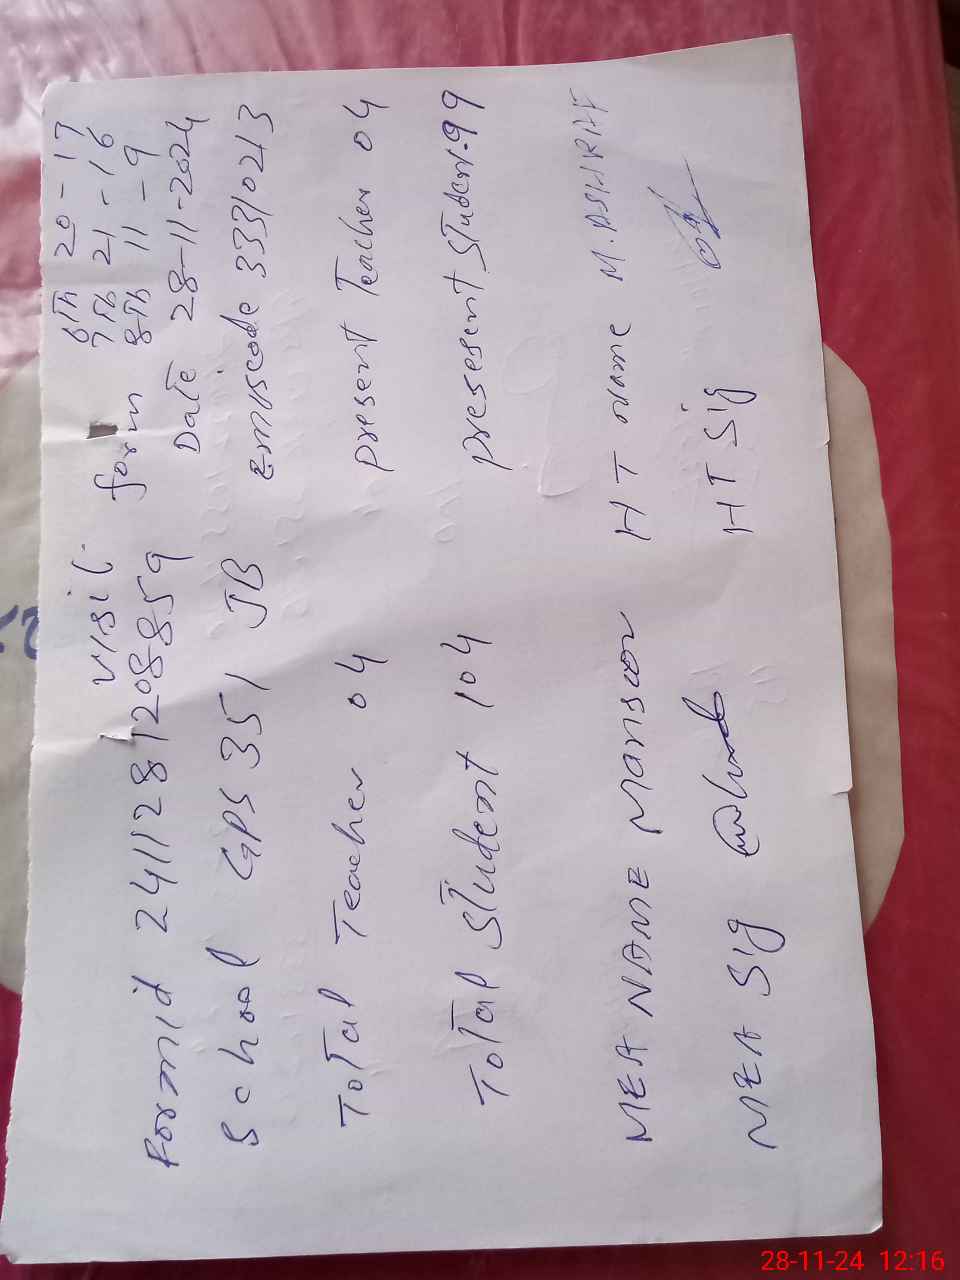 visit form
6Th 20 - 17
7Th 21 - 16
8Th 11 - 9
Formid 2411281208859 Date 28-11-2024
School GPS 351 JB emiscode 33310213
Total Teacher 04 present Teacher 04
Total Student 104 present Student 99
MEA NAME Mansoor HT Name M. ASHRAF
MEA Sig HT Sig
28-11-24 12:16